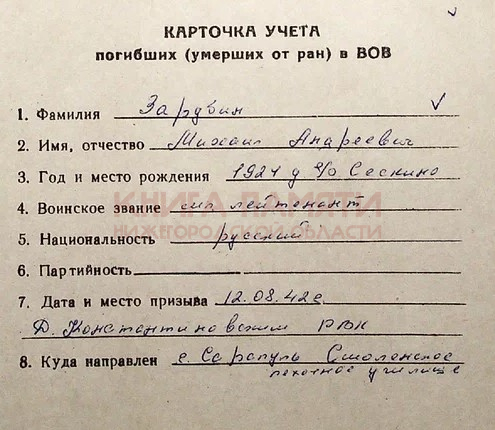 КАРТОЧКА УЧЕТА
погибших (умерших от ран) в ВОВ
1. Фамилия Зарубин
2. Имя, отчество Михаил Андреевич
3. Год и место рождения 1924 д/о Сескино
4. Воинское звание мл лейтенант
КНИГА ПАМЯТИ
НИЖЕГОРОДСКОЙ ОБЛАСТИ
5. Национальность русский
6. Партийность
7. Дата и место призыва 12.08.42г
Д. Константиновским РВК
8. Куда направлен г. Сарапуль Смоленское
пехотное училище